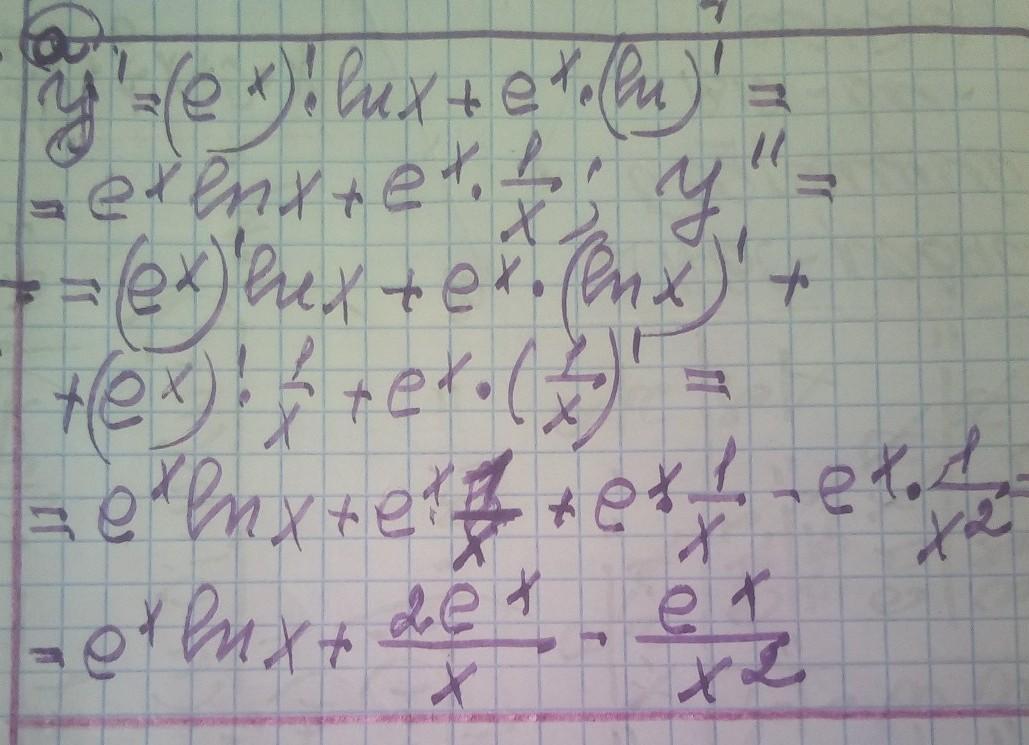 2
y' = (e^x)' · ln x + e^x · (ln)' =
= e^x ln x + e^x · 1/x ; y'' =
= (e^x)' ln x + e^x · (ln x)' +
+ (e^x)' · 1/x + e^x · (1/x)' =
= e^x ln x + e^x · 1/x + e^x · 1/x - e^x · 1/x^2 =
= e^x ln x + 2e^x/x - e^x/x^2